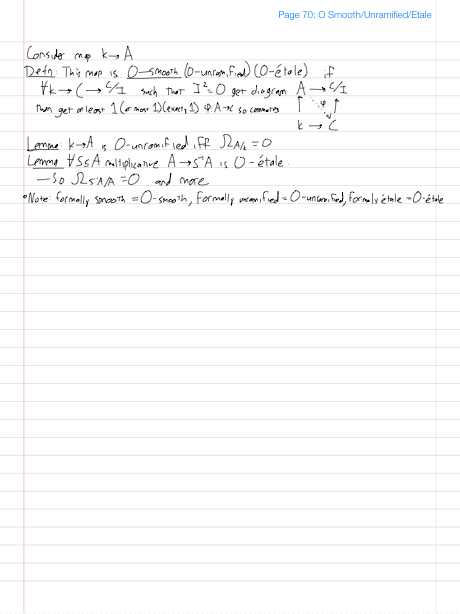 Page 70: O Smooth/Unramified/Etale
Consider map k→A
Defn: This map is 0-smooth (0-unramified) (0-étale) if
∀k→C→C/I such that I²=0 get diagram A→C/I
then get at least 1 (at most 1) (exactly 1) φ:A→C so commutes
k→C
Lemma: k→A is 0-unramified iff Ω_{A/k}=0
Lemma ∀S⊆A multiplicative A→S⁻¹A is 0-étale.
—So Ω_{S⁻¹A/A}=0 and more
•Note: formally smooth = 0-smooth, Formally unramified = 0-unramified, formally étale = 0-étale